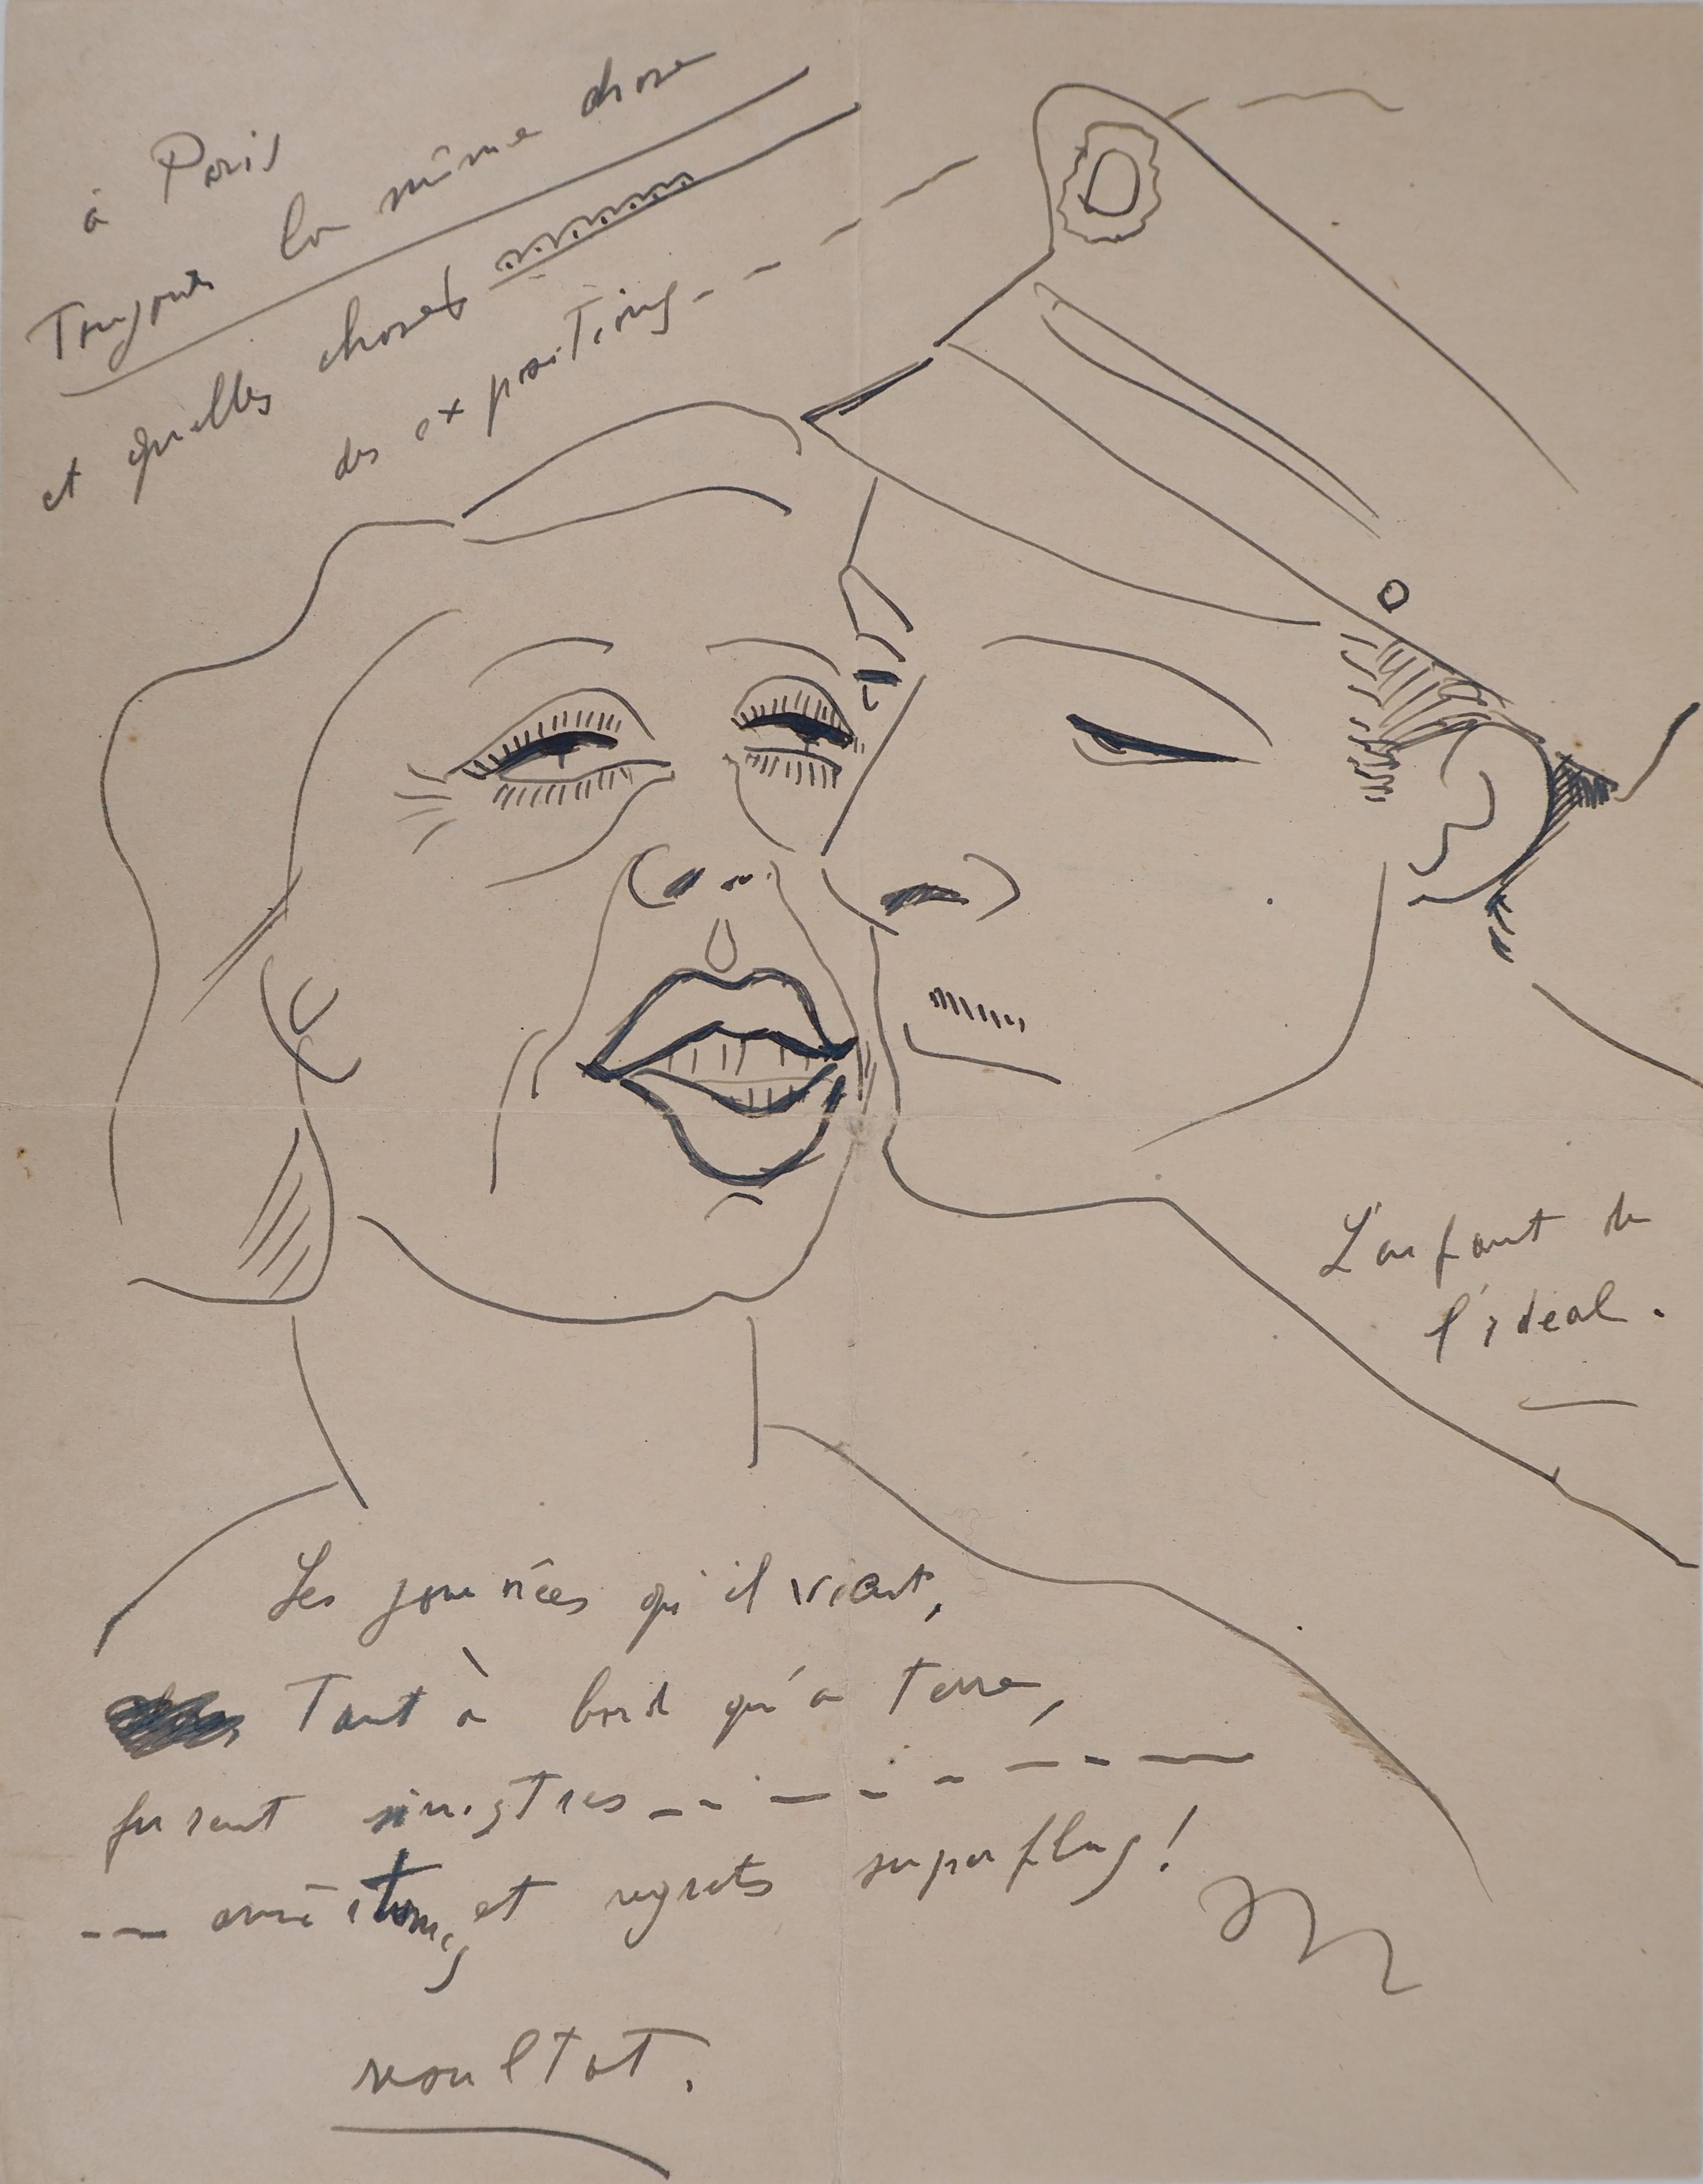 à Paris
Toujours la même chose
et quelles choses
des expositions - -
L'enfant de
l'idéal.
Les journées qu'il vient,
Tant à bord qu'à terre,
furent sinistres
et regrets superflus!
resultat.